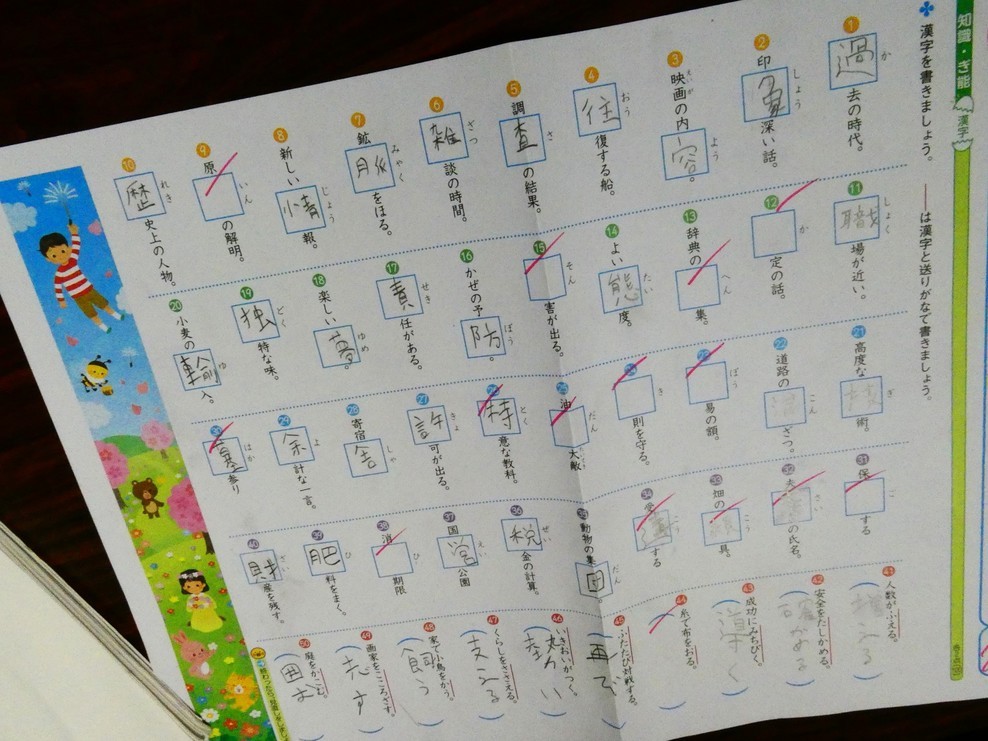 知識・ぎ能
漢字
漢字を書きましょう。――は漢字と送りがなで書きましょう。
1 過か去の時代。
2 印しょう深い話。
3 映えい画がの内容よう。
4 往おう復する船。
5 調査さの結果。
6 雑ざつ談の時間。
7 鉱脈みゃくをほる。
8 新しい情じょう報。
9 原いんの解明。
10 歴れき史上の人物。
11 職しょく場が近い。
12 か定の話。
13 辞典のへん集。
14 よい態たい度。
15 そん害が出る。
16 かぜの予防ぼう。
17 責せき任がある。
18 楽しい夢ゆめ。
19 独どく特な味。
20 小麦の輸ゆ入。
21 高度な技ぎ術。
22 道路の混こんざつ。
23 ぼう易の額。
24 き則を守る。
25 油だん大敵
26 特とく意な教科。
27 許きょ可が出る。
28 寄宿舎しゃ
29 余よ計な一言。
30 墓はか参り
31 保ごする
32 夫さいの氏名。
33 畑のこう具。
35 動物の集団だん
36 税ぜい金の計算。
37 国営えい公園
38 消ひ期限
39 肥ひ料をまく。
40 財ざい産を残す。
41 人数がふえる。(増える)
42 安全をたしかめる。(確かめる)
43 成功にみちびく。(導く)
44 糸で布をおる。( )
45 ふたたび対戦する。(再び)
46 いきおいがつく。
47 くらしをささえる。(支える)
48 家で小鳥をかう。(飼う)
49 画家をこころざす。(志す)
50 庭をかこむ。(囲む)